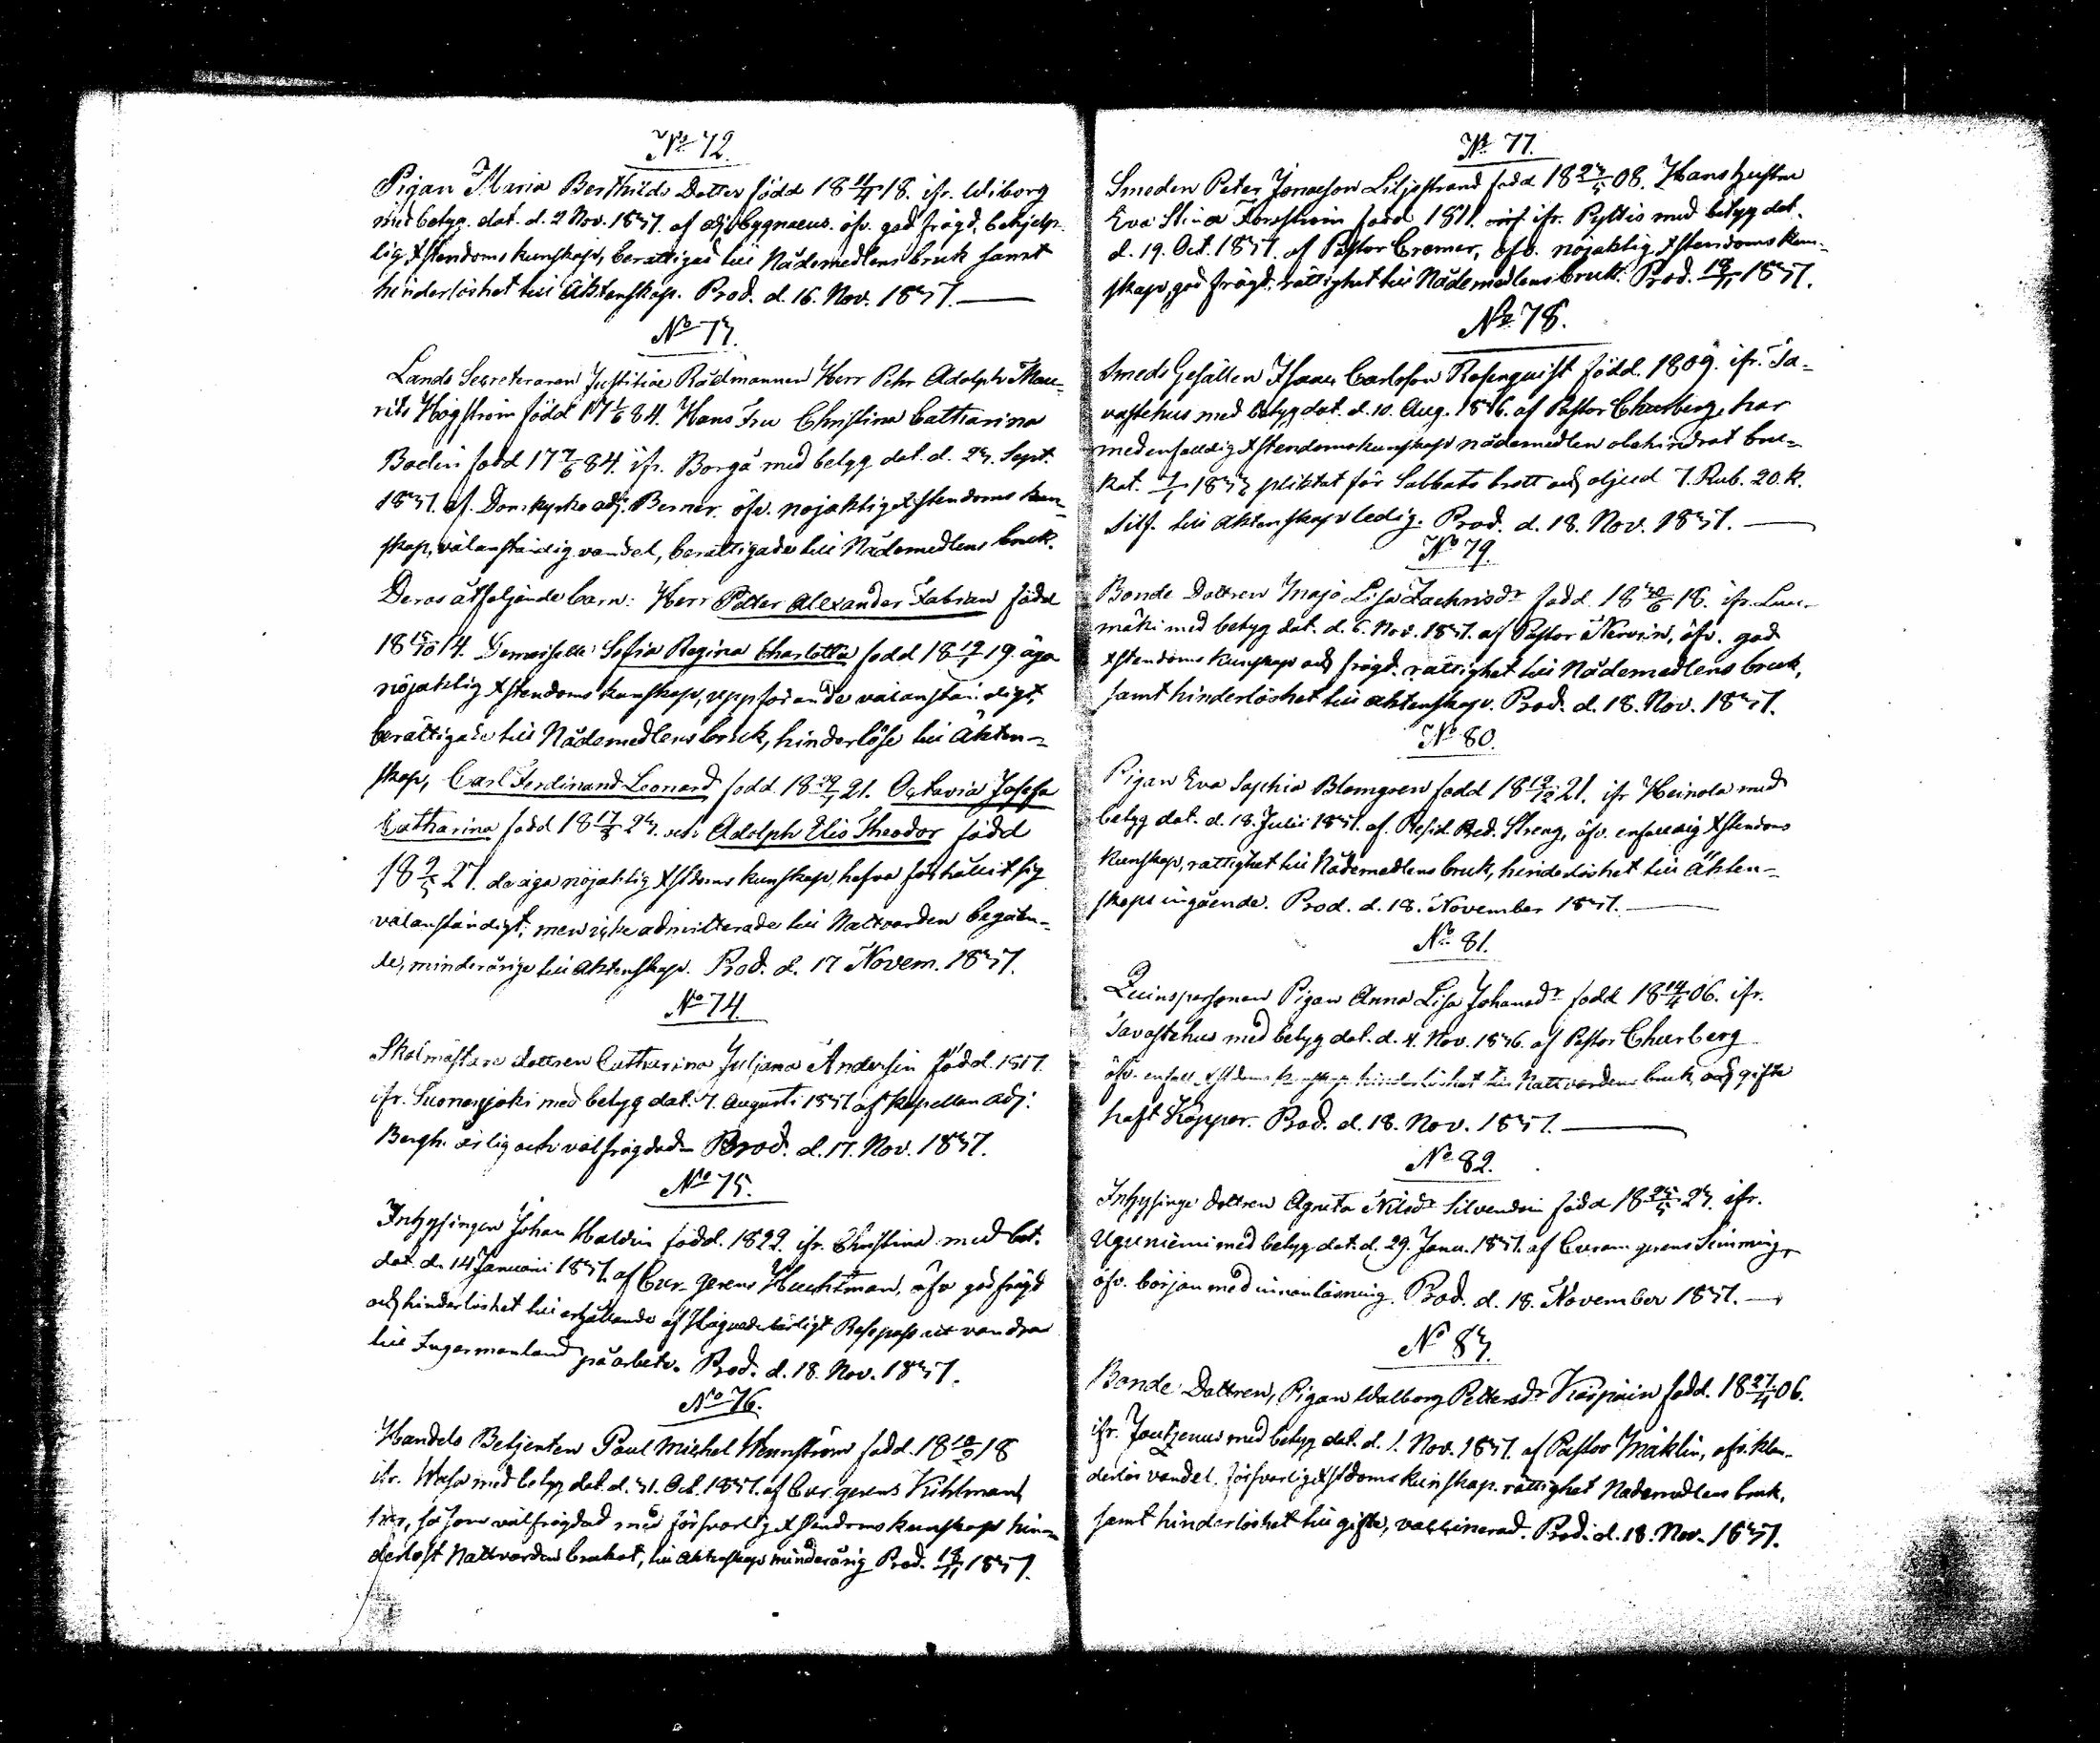 No 72.
Pigan Maria Berthilds Dotter född 18 11/4 18. ifr. Wiborg
med betyg. dat. d. 2 Nov. 1837. af adj. Bygnaeus. öfv. god frägd, behjelp-
lig Xstendoms kunskap, berättigad till Nådemedlens bruk samt
hinderlöshet till Äktenskap. Prod. d. 16. Nov. 1837.
No 73.
Lands Secreteraren Justitiae Rådmannen Herr Pehr Adolph Mau-
ritz Högström född 17 1/6 84. Hans Fru Christina Catharina
Bodin född 17 7/6 84. ifr. Borgå med betyg dat. d. 23. Sept.
1837. af Domkyrko adj. Berner. öfv. nöjaktig Xstendoms kun-
skap, välanständig vandel, berättigade till Nådemedlens bruk.
Deras åtföljande barn: Herr Petter Alexander Fabian född
18 15/10 14. Demoiselle Sofia Regina Charlotta född 18 12/1 19. äga
nöjaktlig Xstendoms kunskap, uppförande välanständigt,
berättigade till Nådemedlens bruk, hinderlöse till Äkten-
skap, Carl Ferdinand Leonard född 18 29/1 21. Octavia Josefa
Catharina född 18 17/8 23. och Adolph Elis Theodor född
18 2/5 27. de äga nöjaktlig Xstdoms kunskap, hafva förhållit sig
välanständigt; men icke admitterade till Nattvarden begåen-
de, minderårige till Äktenskap. Prod. d. 17 Novem. 1837.
No 74.
Skolmästare dottren Catharina Juljana Andersin född. 1817.
ifr. Suonenjoki med betyg dat. 7. Augusti 1837 af Kapellan adj:
Bergh. ärlig och välfrägdad. Prod. d. 17. Nov. 1837.
No 75.
Inhysingen Johan Haldin född. 1822. ifr. Christina med bet.
dat. d. 14 Januari 1837. af Cur. gerens Huchtman, öfv god frägd
och hinderlöshet till erhållande af Resepass att vandra
till Ingermanland på arbete. Prod. d. 18. Nov. 1837.
No 76.
Handels Betjenten Paul Michel Wennström född. 18 18/2 18
ifr. Wasa med betyg dat. d. 31. Oct. 1837. af Cur. gerens Kihlman,
har, så som välfrägdad med försvarlig Xstendoms kunskap hin-
derlöst Nattvarden brukat, till Äktenskap minderårig Prod. 18/11 1837.
No 77.
Smeden Peter Jonasson Liljestrand född 18 23/5 08. Hans hustru
Eva Stina Forsström född 1811. ifr. Pyttis med betyg dat.
d. 19. Oct. 1837. af Pastor Cremer, öfv. nöjaktig Xstendoms kun-
skap, god frägd. rättighet till Nådemedlens bruk. Prod. 18/11 1837.
No 78.
Smeds Gesällen Isaac Carlsson Rosenquist född. 1809. ifr. Ta-
vastehus med betyg dat. d. 10. Aug. 1836. af Pastor Churberg, har
med enfalldig Xstendomskunskap nådemedlen obehindrat bru-
kat. 1833 pliktat för Sabbats brott och oljud 7. Rub. 20. k.
Silf. till äktenskap ledig. Prod. d. 18. Nov. 1837.
No 79.
Bonde Dottren Maja Lisa Zachrisdr född. 18 30/6 18. ifr. Luu-
mäki med betyg dat. d. 6. Nov. 1837. af Pastor Nervin, öfv. god
Xstendoms kunskap och frägd. rättighet till Nådemedlens bruk,
samt hinderlöshet till äktenskap. Prod. d. 18. Nov. 1837.
No 80.
Pigan Eva Sophia Blomgren född 18 12/12 21. ifr Heinola med
betyg dat. d. 18. Julii 1837. af Resid. Pred. Streng, öfv. enfaldig Xstendoms
kunskap, rättighet till Nådemedlens bruk, hinderlöshet till Äkten-
skaps ingående. Prod. d. 18. November 1837.
No 81.
Quinspersonen Pigan Anna Lisa Johansdr född 18 14/4 06. ifr.
Tavastehus med betyg dat. d. 4. Nov. 1836. af Pastor Churberg
öfv. enfall. Xstdoms kunskap hinderlöshet till Nattvardens bruk, och gifte
haft Koppor. Prod. d. 18. Nov. 1837.
No 82.
Inhysinge dottren Agneta Nilsdr Silvendin född 18 25/5 23. ifr.
Uguniemi med betyg dat. d. 29. Janu. 1837. af Curam gerens Simming,
öfv. början med innanläsning. Prod. d. 18. November 1837.
No 83.
Bonde Dottren, Pigan Walborg Pettersdr Käpäin född. 18 27/4 06.
ifr. Joutzenus med betyg dat. d. 1. Nov. 1837. af Pastor Mäklin, öfv. klan-
derlös vandel. försvarlig Xstdoms kunskap. rättighet Nådemedlens bruk,
samt hinderlöshet till gifte, vaccinerad. Prod. d. 18. Nov. 1837.